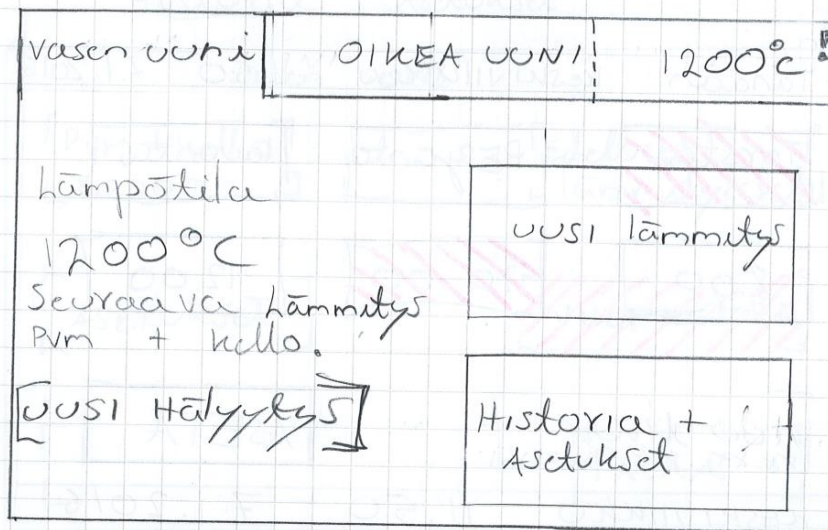 vasen uuni
OIKEA UUNI
1200°C!
Lämpötila
1200°C
Seuraava Lämmitys
Pvm + kello.
UUSI Hälyytys
UUSI lämmitys
Historia +
Asetukset